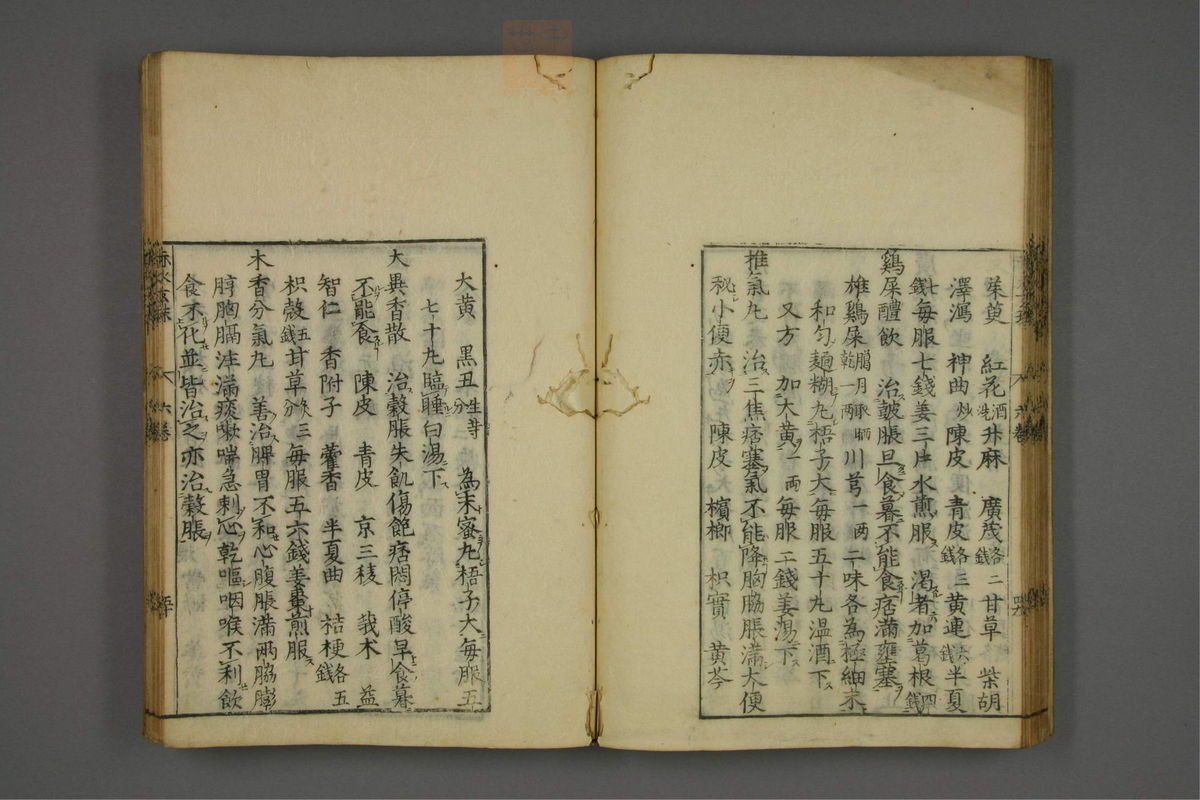 茱萸 紅花酒洗升麻 廣茂各二錢甘草 柴胡
澤瀉 神曲炒陳皮 青皮各三錢黄連六錢半夏
七錢每服七錢姜三片水煎服 渴者加葛根四錢
鷄屎醴飲 治皷脹旦食暮不能食痞滿壅塞
雄鷄屎臘月取晒乾一兩川芎一兩二味各為極細末
和勻麵糊丸梧子大每服五十丸温酒下
又方 加大黄一兩每服二錢姜湯下
推氣丸 治三焦痞塞氣不能降胸脇脹滿大便
秘小便赤 陳皮 檳榔 枳實 黄芩
大黄 黑丑生等分 為末蜜丸梧子大每服五
七十丸臨睡白湯下
大異香散 治穀脹失飢傷飽痞悶停酸早食暮
不能食 陳皮 青皮 京三稜 莪术 益
智仁 香附子 藿香 半夏曲 桔梗各五錢
枳殻五錢甘草炙三分每服五六錢姜棗煎服
木香分氣丸 善治脾胃不和心腹脹滿兩脇膨
脝胸膈注滿痰嗽喘急刺心乾嘔咽喉不利飲
食不化並皆治之亦治穀脹
赤水玄珠
六卷